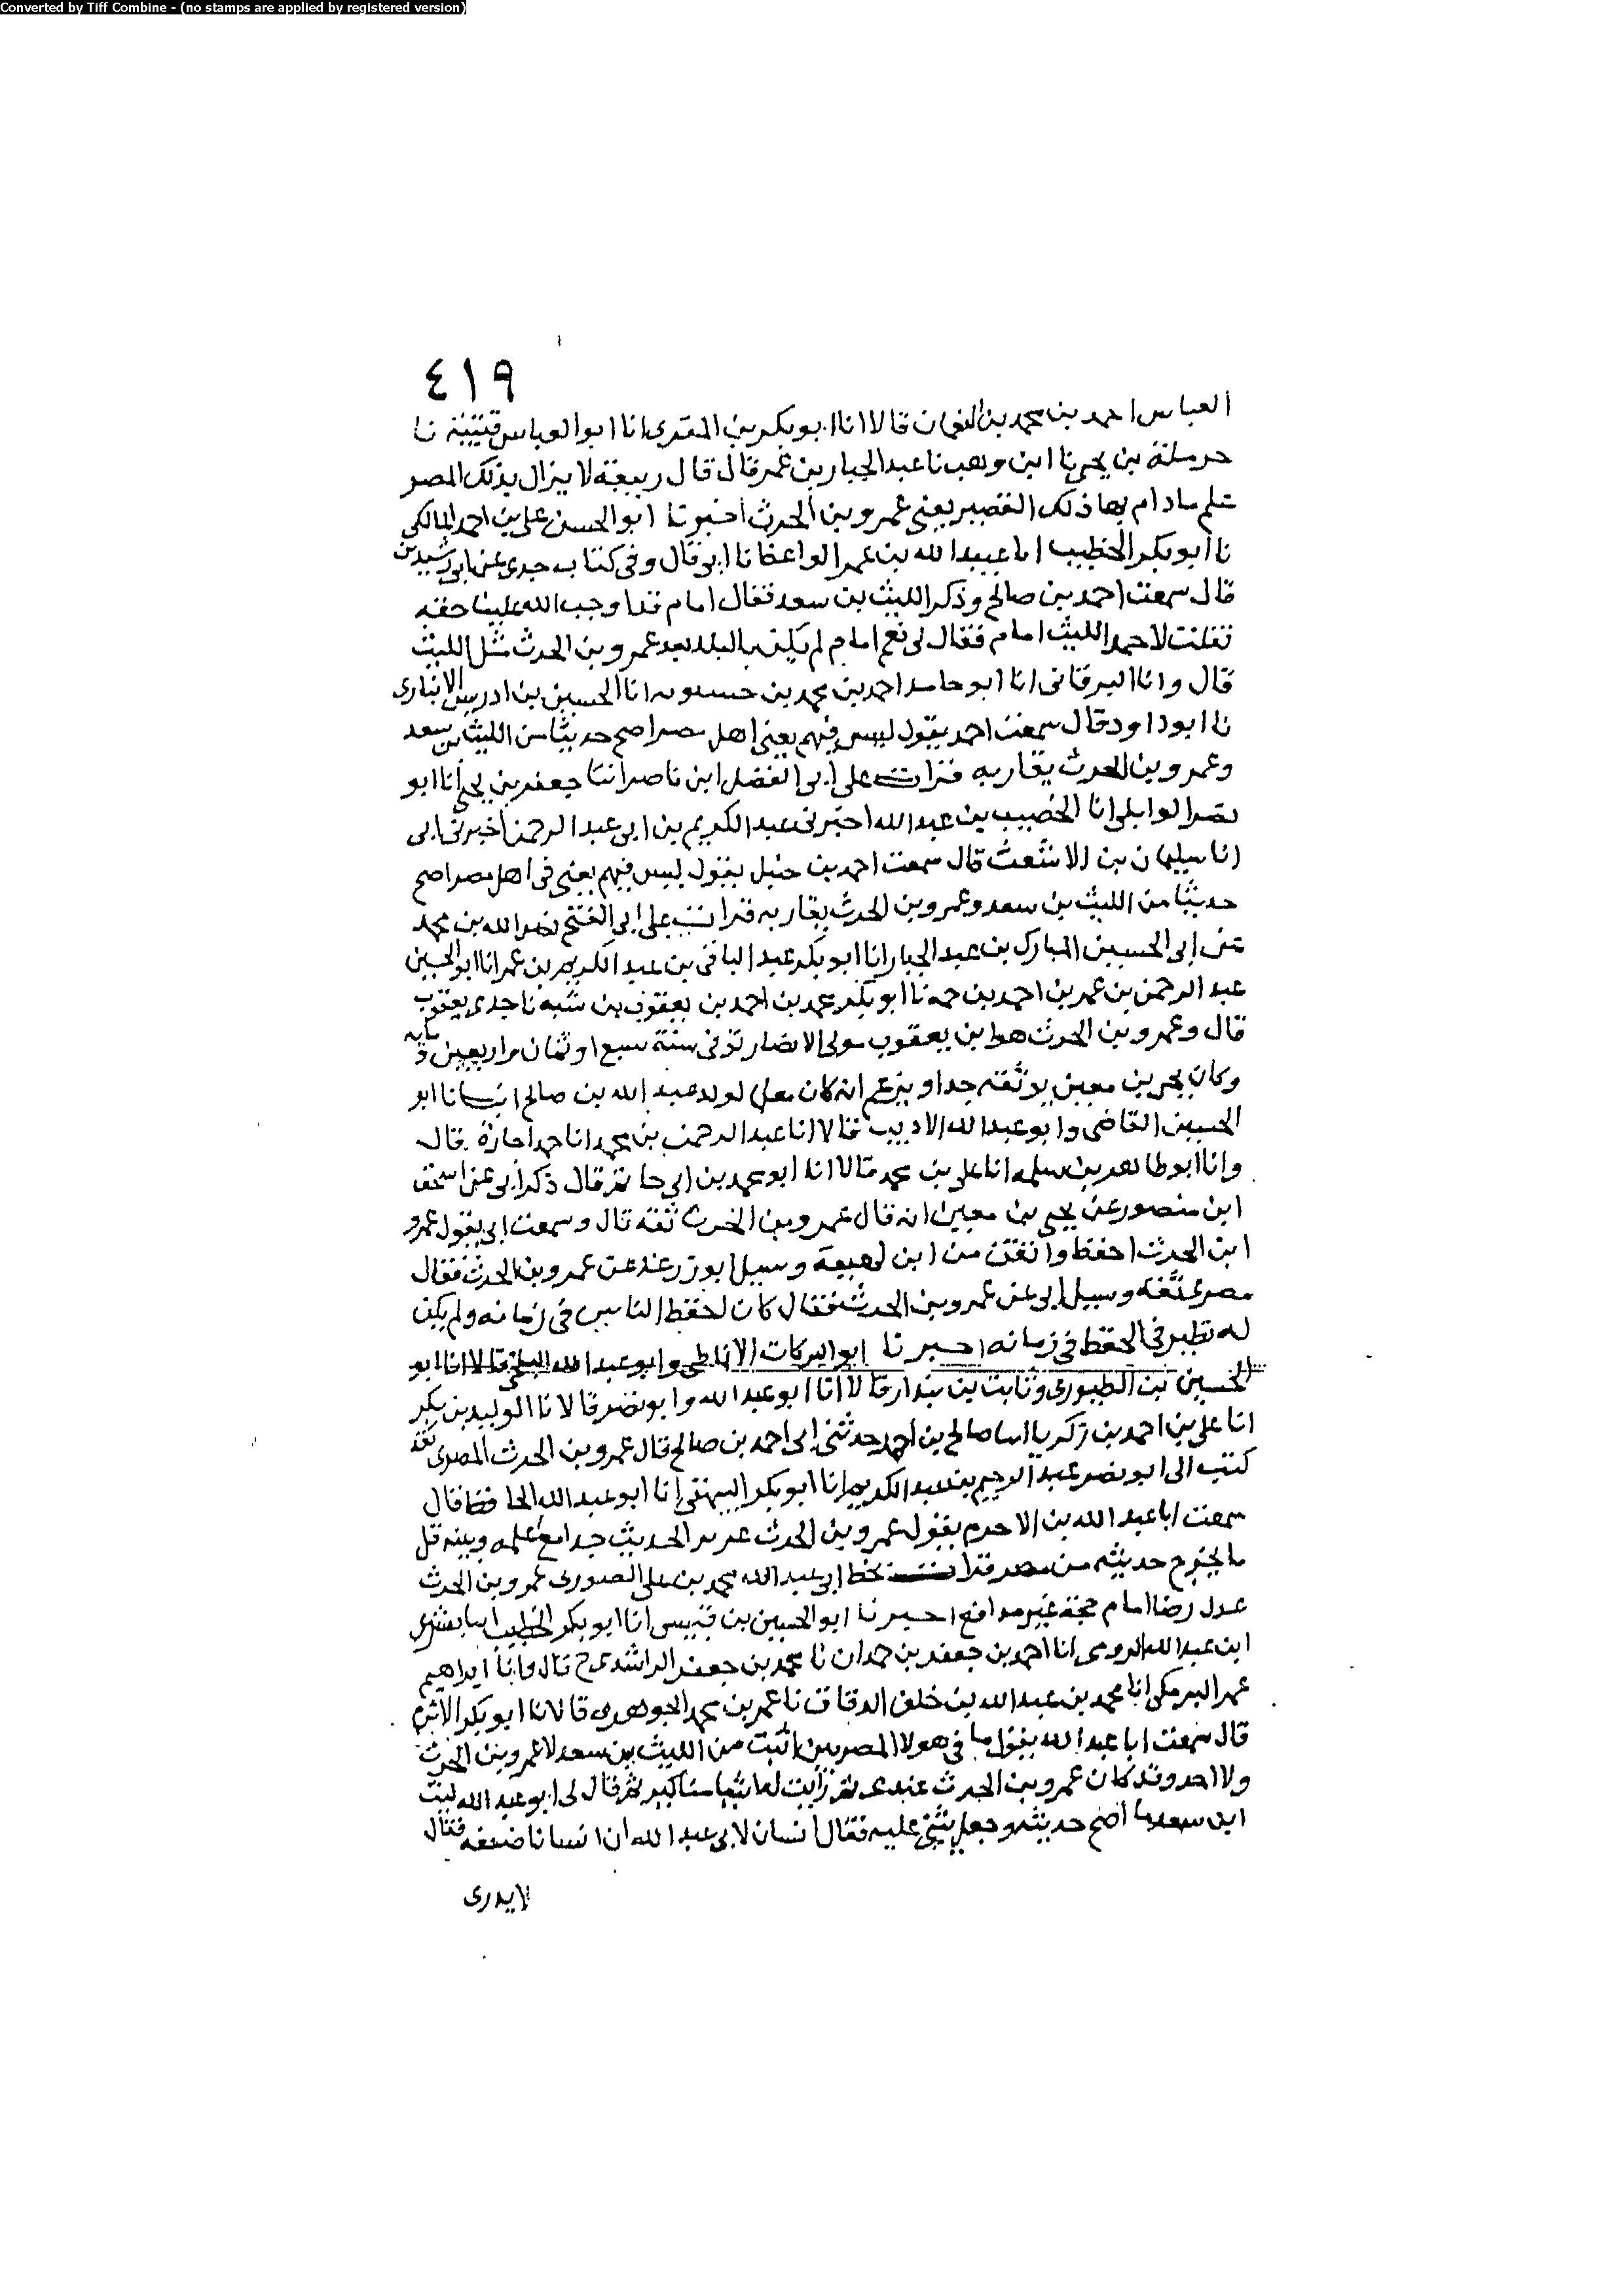 Converted by Tiff Combine - (no stamps are applied by registered version)
٤١٩
العباس احمد بن محمد بن النعمان قالا انا ابو بكر بن المقرى انا ابو العباس قتيبة نا
حرملة بن يحيى نا ابن وهب نا عبد الجبار بن عمر قال قال ربيعة لا يزال بذلك المصر
علم مادام بها ذلك القصير يعنى عمرو بن الحرث اخبرنا ابو الحسن على بن احمد المالكى
نا ابو بكر الخطيب انا عبيد الله بن عمر الواعظ نا ابى قال وفى كتاب جدى عن ابن رشدين
قال سمعت احمد بن صالح وذكر الليث بن سعد فقال امام قد اوجب الله علينا حقه
فقلت لاحمد الليث امام فقال لى نعم امام لم يكن بالبلد بعد عمرو بن الحرث مثل الليث
قال وانا البرقانى انا ابو حامد احمد بن محمد بن حسنويه انا الحسين بن ادريس الانبارى
نا ابو داود قال سمعت احمد يقول ليس فيهم يعنى اهل مصر اصح حديثا من الليث بن سعد
وعمرو بن الحرث يقاربه قرات على ابى الفضل ابن ناصر انا جعفر بن يحيى انا ابو
نصر الوايلى انا الخصيب بن عبد الله اخبرنى عبد الكريم بن ابى عبد الرحمن اخبرنى ابى
انا سليمان بن الاشعث قال سمعت احمد بن حنبل يقول ليس فيهم يعنى فى اهل مصر اصح
حديثا من الليث بن سعد وعمرو بن الحرث يقاربه قرات على ابى الفتح نصر الله بن محمد
عن ابى الحسين المبارك بن عبد الجبار انا ابو بكر عبد الباقى بن عبد الكريم بن عمر انا ابو الحسين
عبد الرحمن بن عمر بن احمد بن حمه نا ابو بكر محمد بن احمد بن يعقوب بن شبه نا جدى يعقوب
قال وعمرو بن الحرث هو ابن يعقوب مولى الانصار توفى سنة سبع او ثمان واربعين ومايه
وكان يحيى بن معين يوثقه جدا ويزعم انه كان معلم لولد عبد الله بن صالح انبانا ابو
الحسين القاضى وابو عبد الله الاديب قالا انا عبد الرحمن بن محمد انا حمد اجازة قال
وانا ابو طاهر بن سلمه انا على بن محمد قالا انا ابو محمد بن ابى حاتم قال ذكر ابى عن اسحق
ابن منصور عن يحيى بن معين انه قال عمرو بن الحرث ثقه قال وسمعت ابى يقول عمرو
ابن الحرث احفظ واتقن من ابن لهيعة وسيل ابو زرعة عن عمرو بن الحرث فقال
مصرى ثقه وسيل ابى عن عمرو بن الحرث فقال كان احفظ الناس فى زمانه ولم يكن
له نظير فى الحفظ فى زمانه اخبرنا ابو البركات الانماطى وابو عبد الله البلخى قالا انا ابو
الحسين بن الطيورى وثابت بن بندار قالا انا ابو عبد الله وابو نصر قالا نا الوليد بن بكر
انا على بن احمد بن زكريا انا صالح بن احمد حدثنى ابى احمد بن صالح قال عمرو بن الحرث المصرى ثقة
كتب الى ابو نصر عبد الرحيم بن عبد الكريم انا ابو بكر البيهقى انا ابو عبد الله الحافظ قال
سمعت ابا عبد الله بن الاخرم يقول عمرو بن الحرث عزيز الحديث جدا مع علمه وثبته قل
ما يخرج حديثه من مصر قرات بخط ابى عبد الله محمد بن على الصورى عمرو بن الحرث
عدل رضا امام حجة غير مدافع اخبرنا ابو الحسين بن قبيس انا ابو بكر الخطيب انا بشرى
ابن عبد الله الرومى انا احمد بن جعفر بن حمدان نا محمد بن جعفر الراشدى ح قال وانا ابراهيم
عمر البرمكى انا محمد بن عبد الله بن خلف الدقاق نا عمر بن محمد الجوهرى قالا نا ابو بكر الاثرم
قال سمعت ابا عبد الله يقول ما فى هولا المصريين اثبت من الليث بن سعد لا عمرو بن الحرث
ولا احد وقد كان عمرو بن الحرث عندى ثم رايت له اشيا مناكير ثم قال لى ابو عبد الله ليث
ابن سعد ما اصح حديثه وجعل يثنى عليه فقال انسان لابى عبد الله ان انسانا ضعفه فقال
لا يدرى